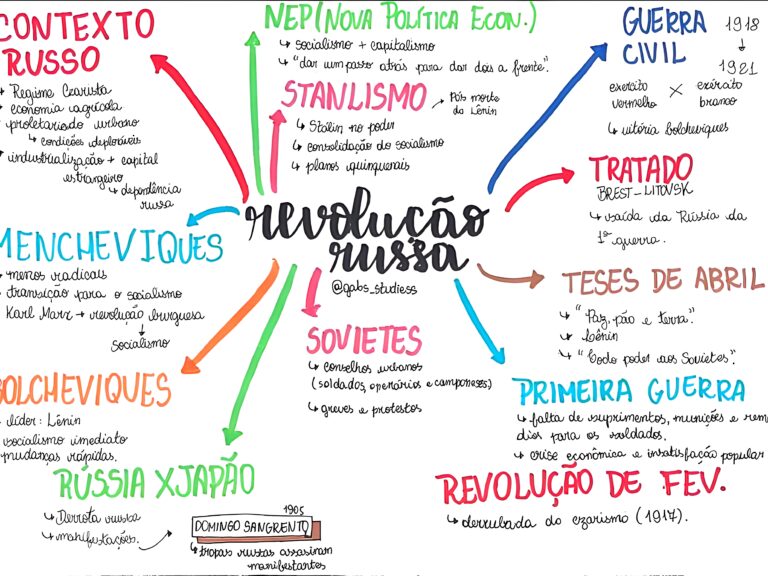 CONTEXTO
RUSSO
Regime Czarista
economia agrícola
proletariado urbano
↳ condições deploráveis
industrialização + capital
estrangeiro
↳ dependência
russa
NEP (NOVA POLÍTICA ECON.)
↳ socialismo + capitalismo
↳ "dar um passo atrás para dar dois a frente".
STANLISMO
→ Pós morte
da Lênin
↳ Stálin no poder
↳ consolidação do socialismo
↳ planos quinquenais
GUERRA
CIVIL
1918
↓
1921
exército
vermelho
X
exército
branco
↳ vitória bolcheviques
TRATADO
BREST-LITOVSK
↳ saída da Rússia da
1ª guerra.
revolução
russa
@gabs_studiess
MENCHEVIQUES
menos radicais
transição para o socialismo
Karl Marx → revolução burguesa
↓
Socialismo
TESES DE ABRIL
↳ "Paz, pão e terra".
↳ Lênin
↳ "Todo poder aos Sovietes".
SOVIETES
↳ conselhos urbanos
(soldados, operários e camponeses)
↳ greves e protestos
BOLCHEVIQUES
líder: Lênin
socialismo imediato
mudanças rápidas.
PRIMEIRA GUERRA
↳ falta de suprimentos, munições e remé
dios para os soldados.
↳ crise econômica e insatisfação popular
RÚSSIA X JAPÃO
↳ Derrota russa
↳ manifestações.
1905
DOMINGO SANGRENTO
↳ tropas russas assasinam
manifestantes
REVOLUÇÃO DE FEV.
↳ derrubada do czarismo (1917).